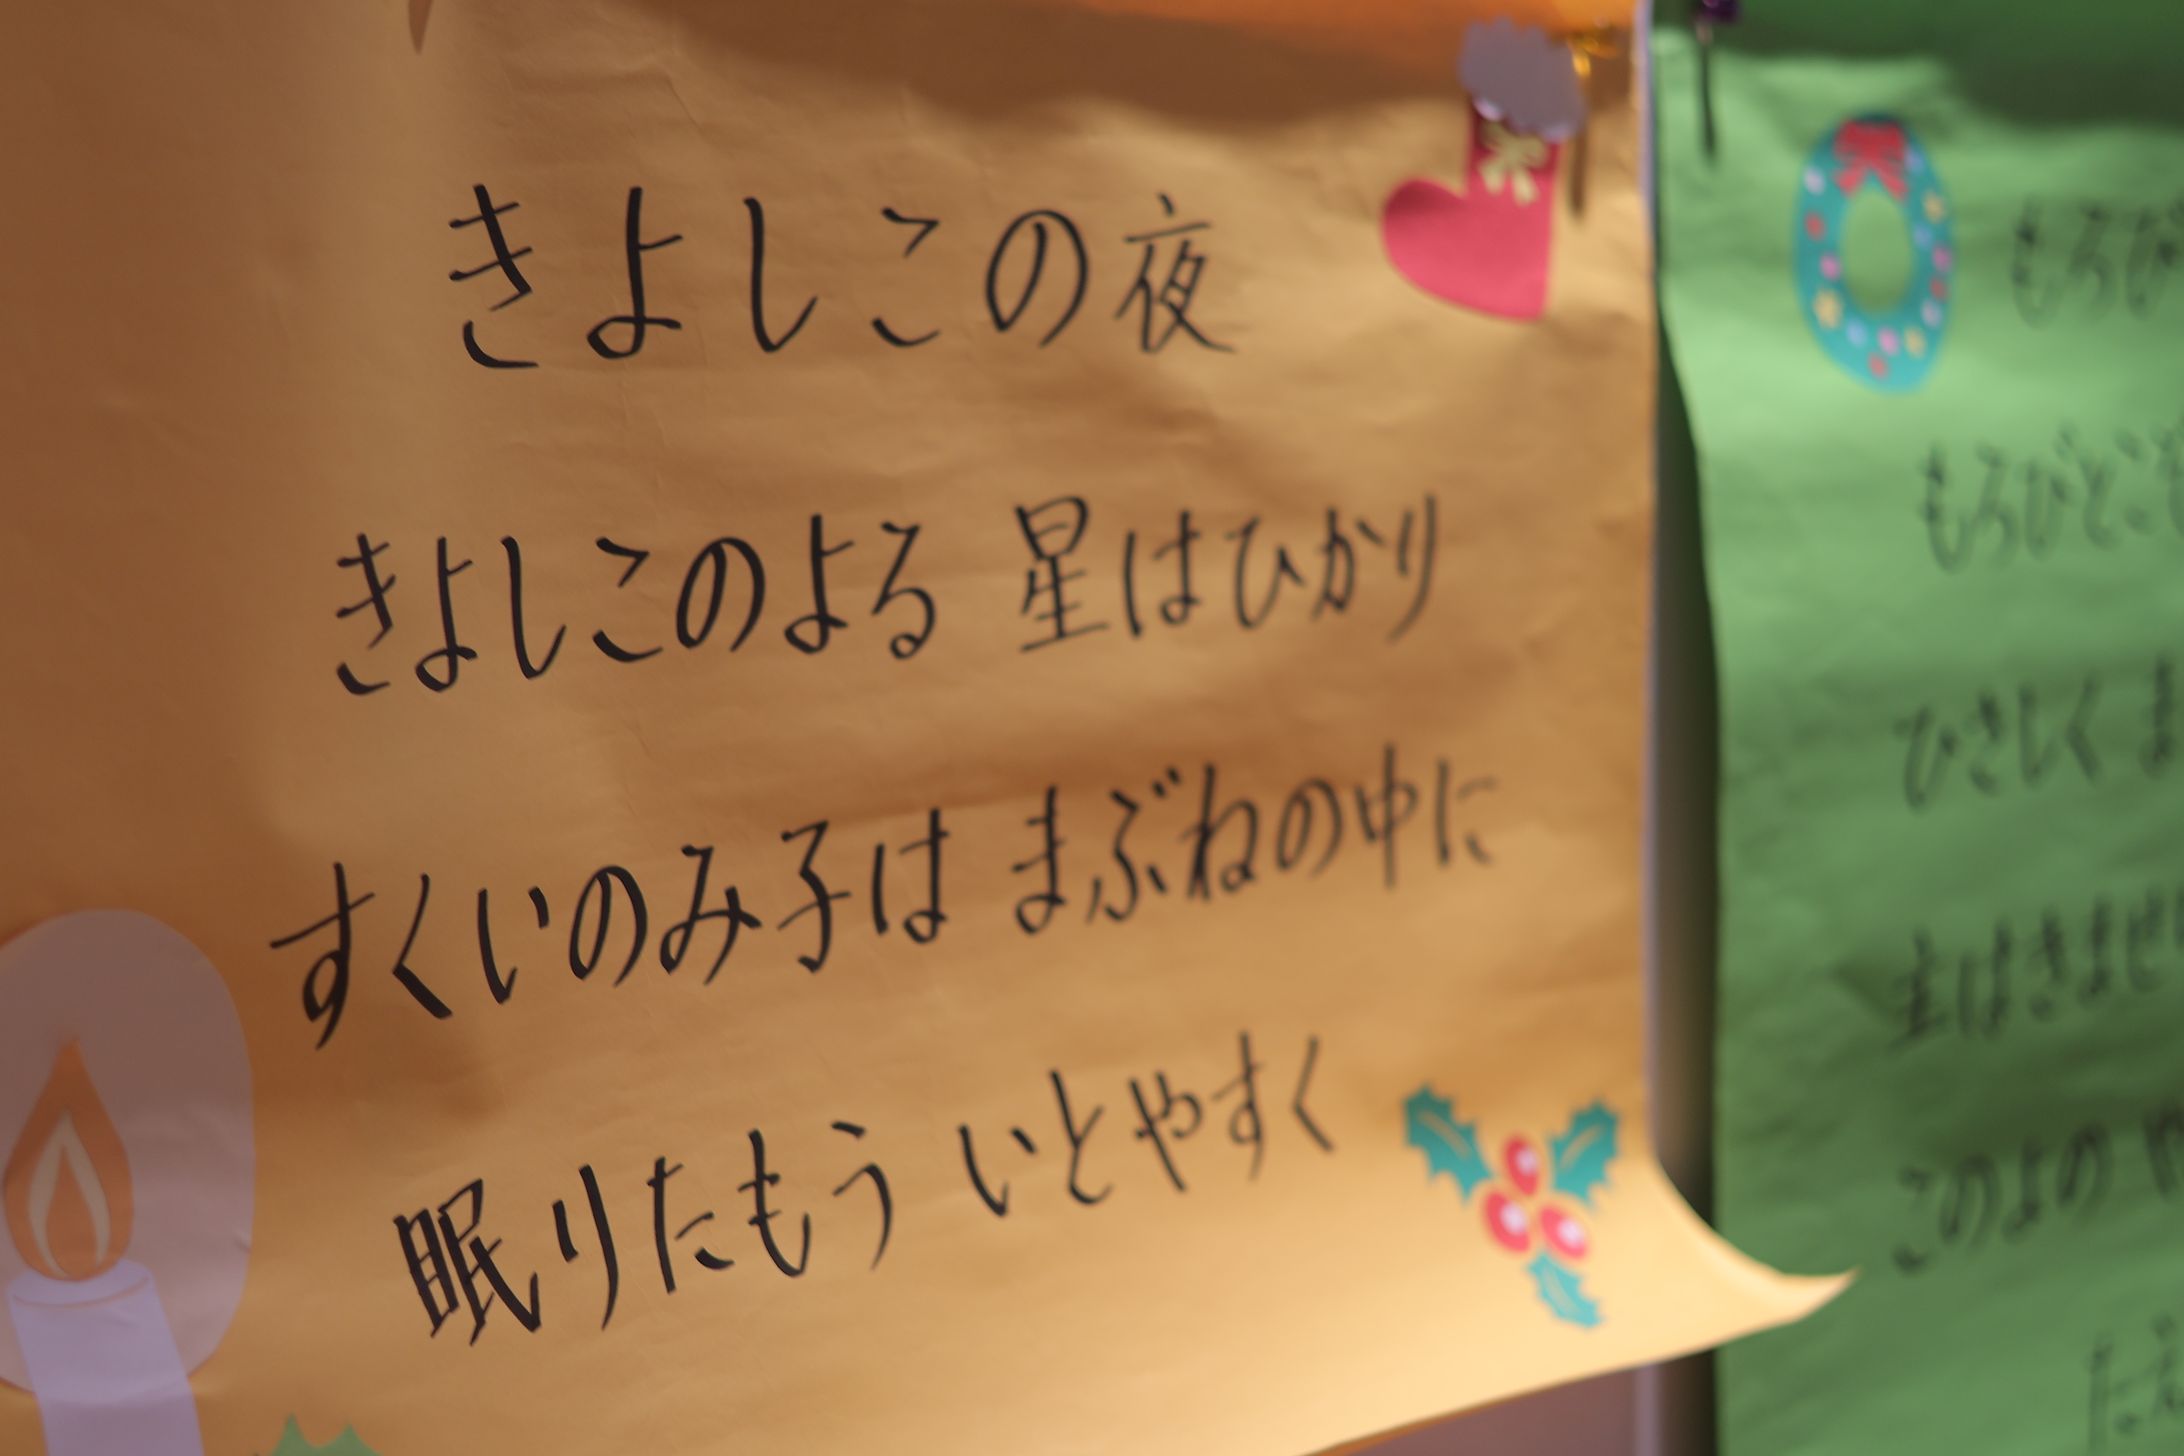 きよしこの夜
きよしこのよる 星はひかり
すくいのみ子は まぶねの中に
眠りたもう いとやすく
もろび
もろびとこぞ
ひさしく ま
主はきませ
このよの や